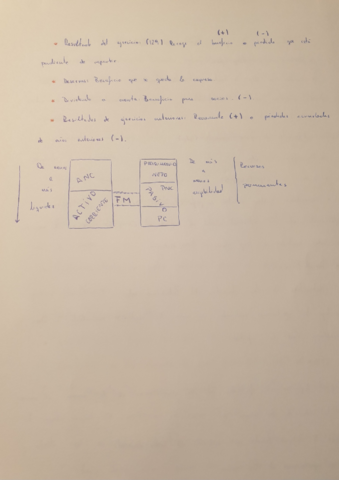 (+) (-)
• Resultado del ejercicio (129) Recoge el beneficio o perdida que está
pendiente de repartir
• Reservas: Beneficio que se queda la empresa
• Dividendo a cuenta: Beneficio para socios (-)
• Resultados de ejercicios anteriores: Remanente (+) o perdidas acumuladas
de años anteriores (-).
De menos
a
más
liquidez
ANC
ACTIVO
CORRIENTE
FM
PATRIMONIO
NETO
PNC
PASIVO
PC
De más
a
menos
exigibilidad
Recursos
permanentes